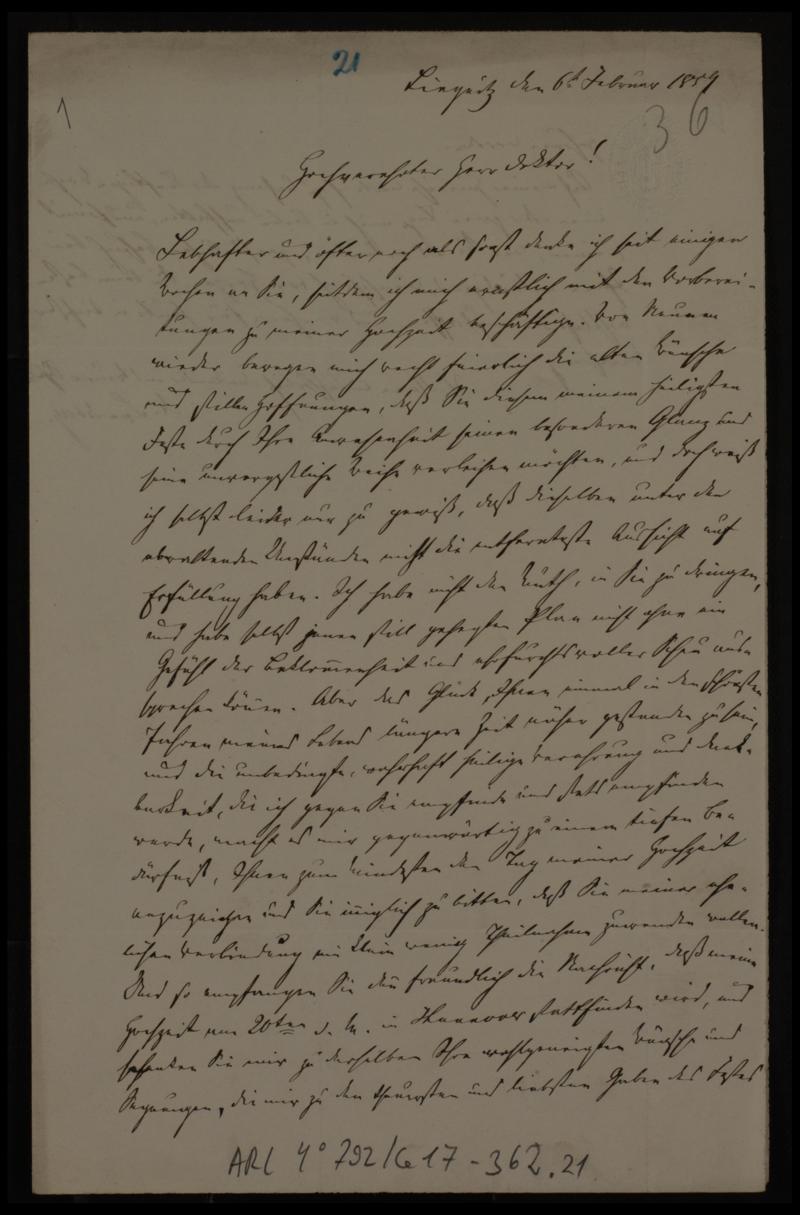 21
Liegnitz den 6t Februar 1859
1
36
Hochverehrter Herr Doktor!
Lebhafter und öfter noch als sonst denke ich seit einigen
Wochen an Sie, seitdem ich mich ernstlich mit den Vorberei-
tungen zu meiner Hochzeit beschäftige. Von Neuem
wieder bewegen mich recht feierlich die alten Wünsche
und stillen Hoffnungen, daß Sie diesem meinem heiligsten
Feste durch Ihre Anwesenheit seinen besonderen Glanz und
seine unvergeßliche Weihe verleihen möchten, und doch weiß
ich selbst leider nur zu gewiß, daß dieselben unter den
obwaltenden Umständen nicht die entfernteste Aussicht auf
Erfüllung haben. Ich habe nicht den Muth, in Sie zu dringen,
und habe selbst jenen still gehegten Plan nicht ohne ein
Gefühl der Beklommenheit und ehrfurchtsvoller Scheu aus-
sprechen können. Aber das Glück, Ihnen einmal in den schönsten
Jahren meines Lebens längere Zeit näher gestanden zu sein,
und die unbedingte, wahrhaft heilige Verehrung und Dank-
barkeit, die ich gegen Sie empfinde und stets empfinden
werde, macht es mir gegenwärtig zu einem tiefen Be-
dürfniß, Ihnen zum Mindesten den Tag meiner Hochzeit
anzuzeigen und Sie inniglich zu bitten, daß Sie meiner ehe-
lichen Verbindung ein klein wenig Theilnahme zuwenden wollen.
Und so empfangen Sie denn freundlich die Nachricht, daß meine
Hochzeit am 20ten d. M. in Hannover stattfinden wird, und
schenken Sie mir zu derselben Ihre wohlgeneigten Wünsche und
Segnungen, die mir zu den theuersten und liebsten Gaben des Festes
ARC 4° 792/G17-362.21